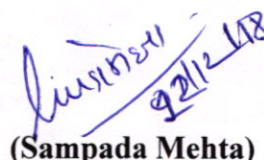 22/12/18
(Sampada Mehta)